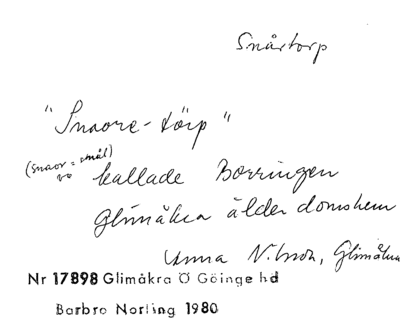 Snårtorp
"Snaore-törp"
(snaor = smål)
kallade Borringen
Glimåkra ålderdomshem
Anna Nilsson, Glimåkra
Nr 17898 Glimåkra Ö Göinge hd
Barbro Norling 1980